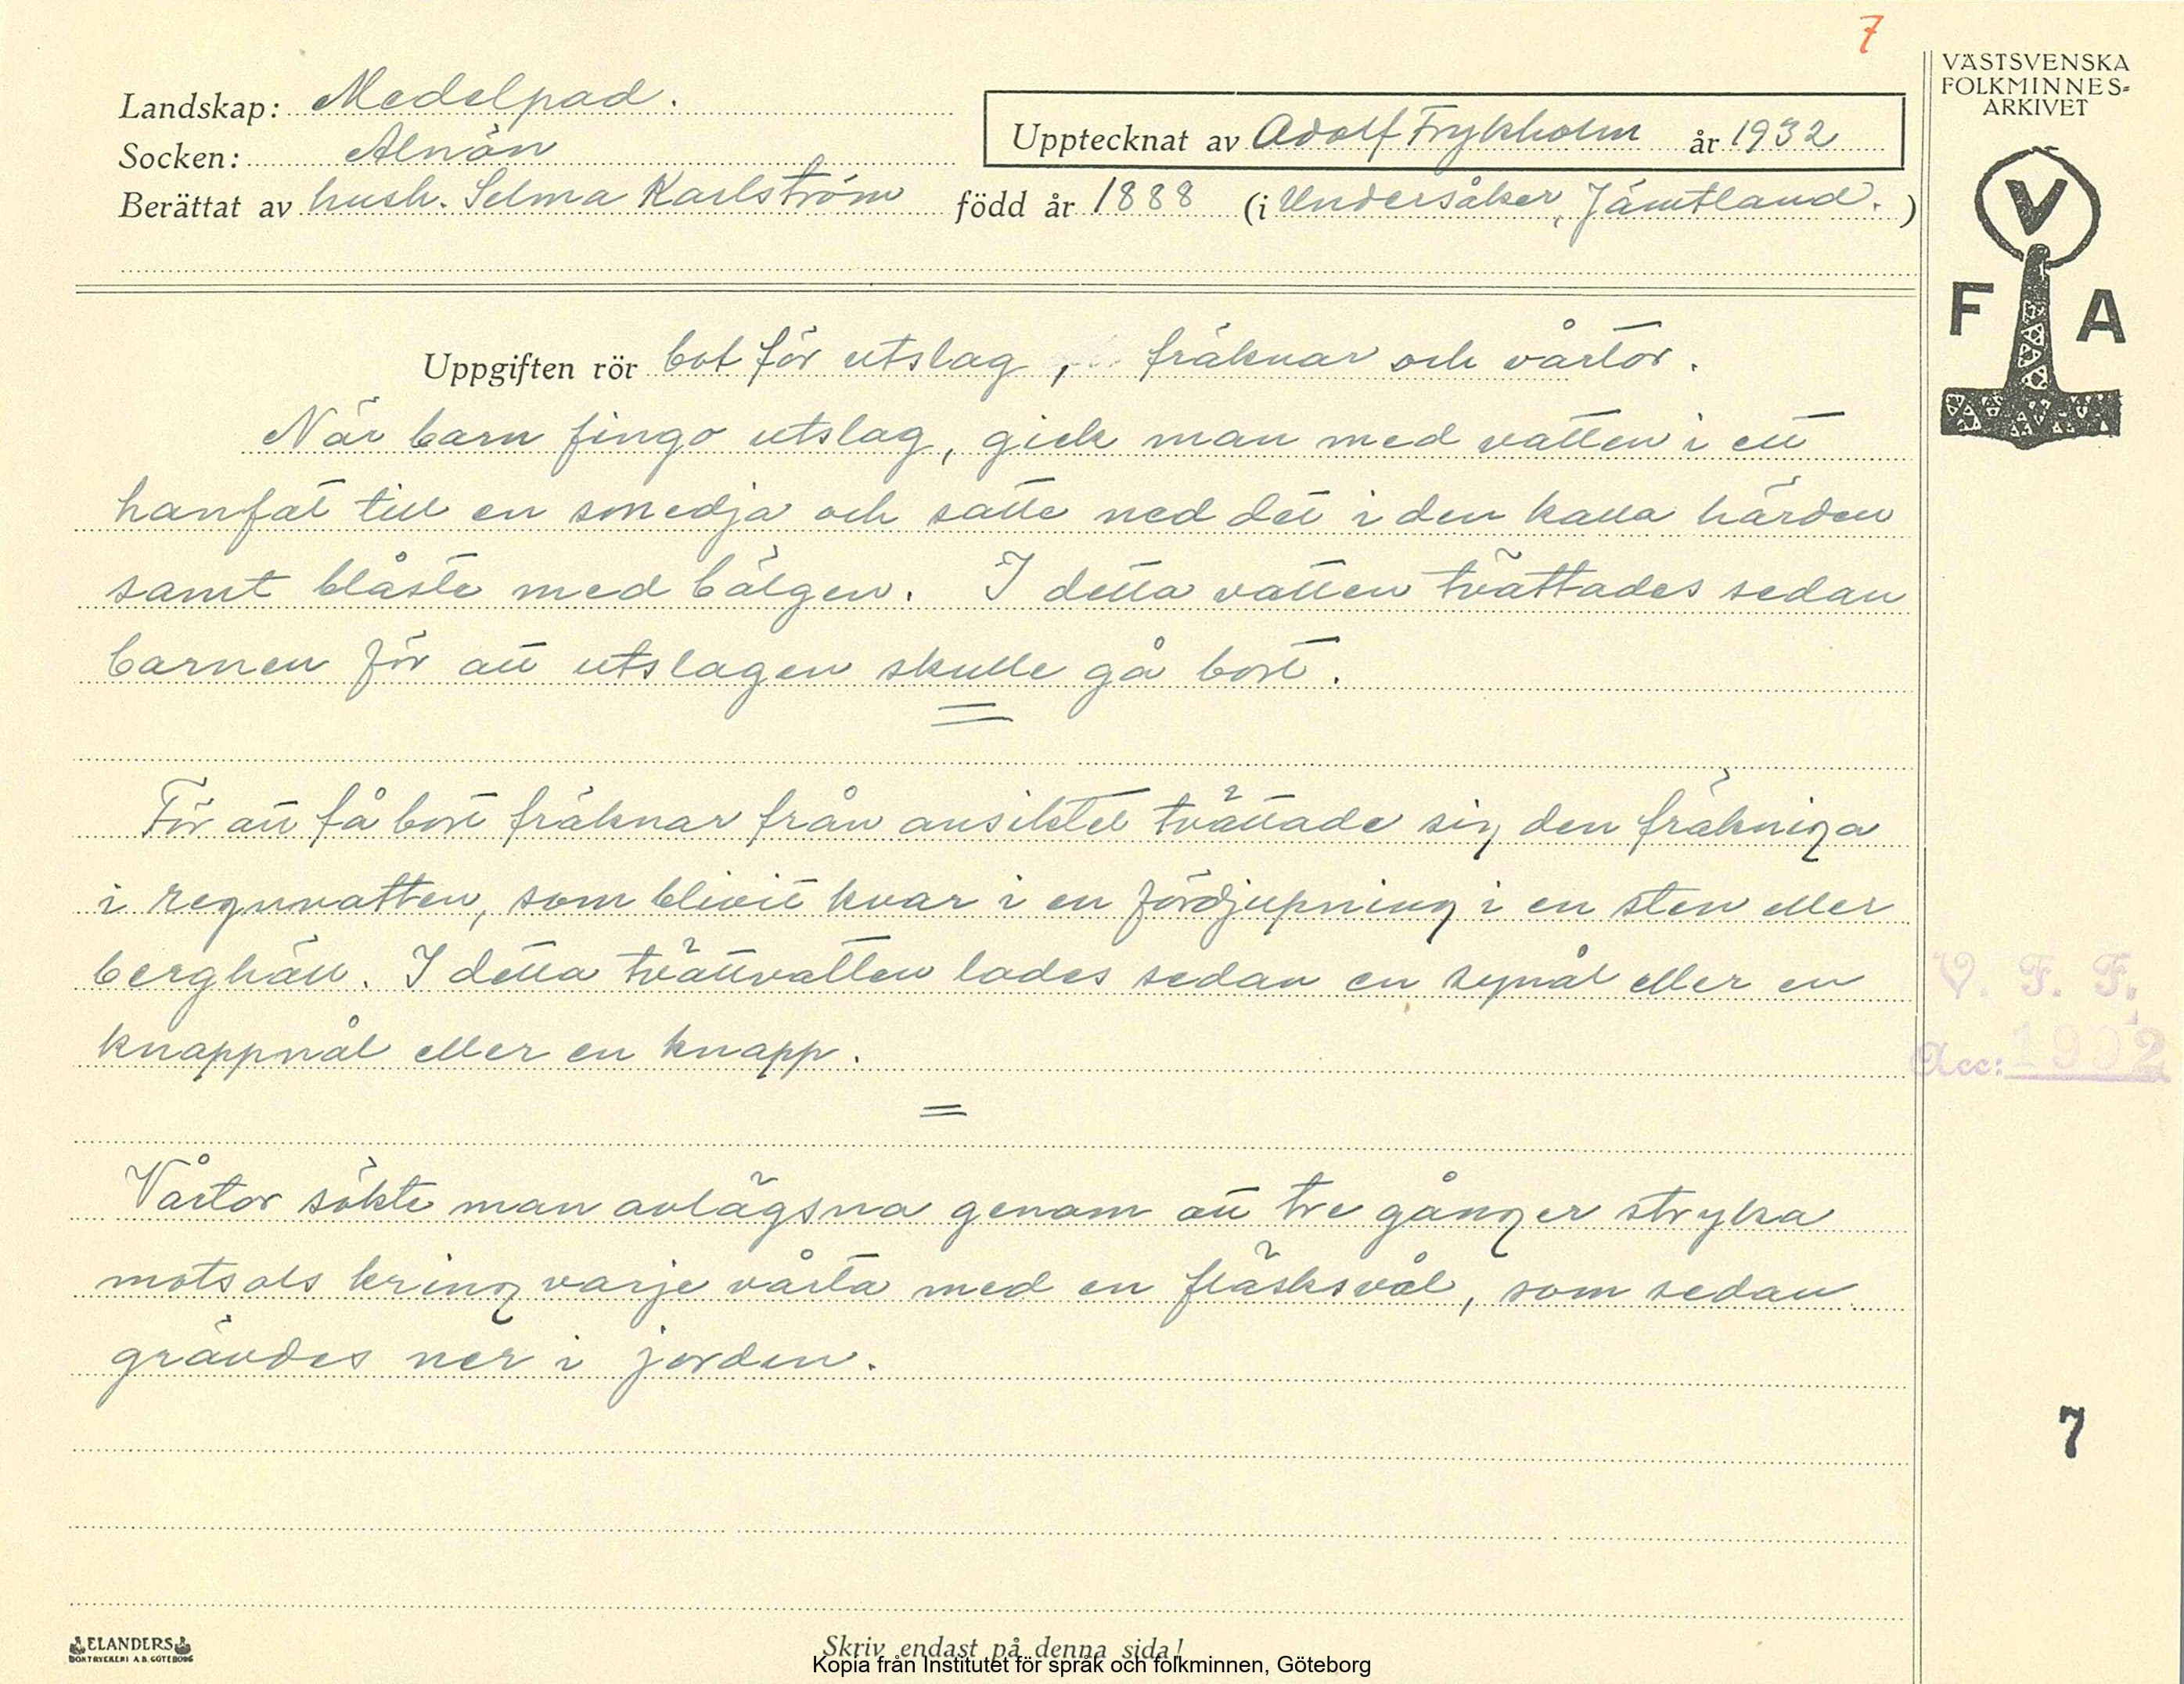 7
VÄSTSVENSKA
FOLKMINNES-
ARKIVET
V
F A
Landskap: Medelpad.
Socken: Alnön
Upptecknat av Adolf Frykholm år 1932
Berättat av hush. Selma Karlström född år 1888 (i Undersåker, Jämtland.)
Uppgiften rör bot för utslag, fräknar och vårtor.
När barn fingo utslag, gick man med vatten i ett
hanfat till en smedja och satte ned det i den kalla härden
samt blåste med bälgen. I detta vatten tvättades sedan
barnen för att utslagen skulle gå bort.
För att få bort fräknar från ansiktet tvättade sig den fräkniga
i regnvatten, som blivit kvar i en fördjupning i en sten eller
berghäll. I detta tvättvatten lades sedan en synål eller en
knappnål eller en knapp.
V. F. F.
Acc: 1932
Vårtor sökte man avlägsna genom att tre gånger stryka
motsols kring varje vårta med en fläsksvål, som sedan
grävdes ner i jorden.
7
ELANDERS
BOKTRYCKERI A.B. GÖTEBORG
Skriv endast på denna sida!
Kopia från Institutet för språk och folkminnen, Göteborg